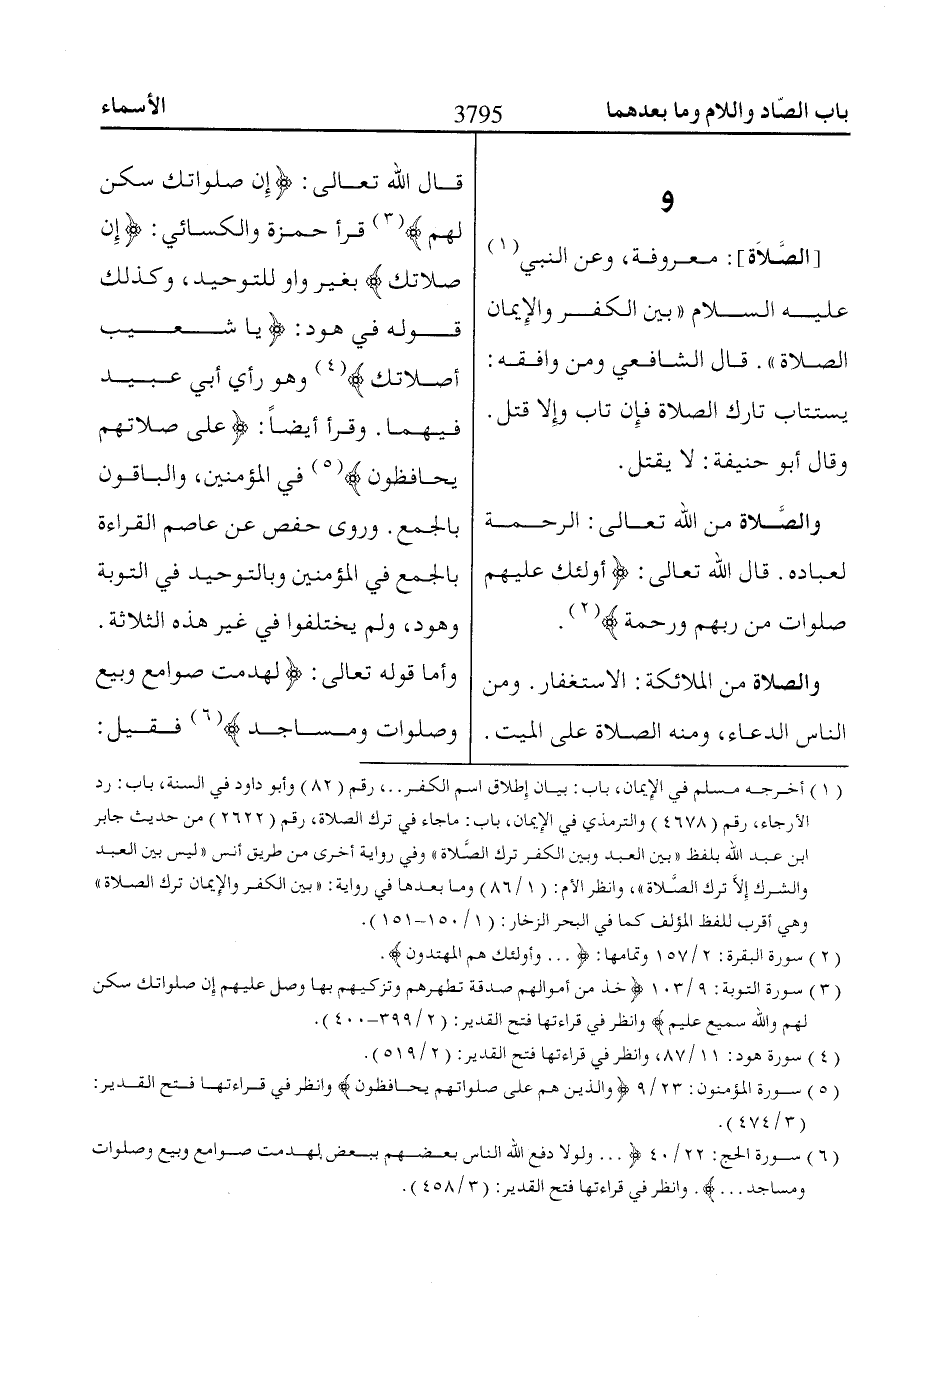 باب الصّاد واللام وما بعدهما
3795
الأسماء
و
[الصَّلاَة]: معروفة، وعن النبي(١)
عليه السلام «بين الكفر والإيمان
الصلاة». قال الشافعي ومن وافقه:
يستتاب تارك الصلاة فإن تاب وإلا قتل.
وقال أبو حنيفة: لا يقتل.
والصَّلاة من الله تعالى: الرحمة
لعباده. قال الله تعالى: ﴿ أولئك عليهم
صلوات من ربهم ورحمة ﴾(٢).
والصلاة من الملائكة: الاستغفار. ومن
الناس الدعاء، ومنه الصلاة على الميت.
قال الله تعالى: ﴿ إن صلواتك سكن
لهم ﴾(٣) قرأ حمزة والكسائي: ﴿ إن
صلاتك ﴾ بغير واو للتوحيد، وكذلك
قوله في هود: ﴿ يا شعيب
أصلاتك ﴾(٤) وهو رأي أبي عبيد
فيهما. وقرأ أيضاً: ﴿ على صلاتهم
يحافظون ﴾(٥) في المؤمنين، والباقون
بالجمع. وروى حفص عن عاصم القراءة
بالجمع في المؤمنين وبالتوحيد في التوبة
وهود، ولم يختلفوا في غير هذه الثلاثة.
وأما قوله تعالى: ﴿ لهدمت صوامع وبيع
وصلوات ومساجد ﴾(٦) فقيل:
(١) أخرجه مسلم في الإيمان، باب: بيان إطلاق اسم الكفر..، رقم (٨٢) وأبو داود في السنة، باب: رد
الأرجاء، رقم (٤٦٧٨) والترمذي في الإيمان، باب: ماجاء في ترك الصلاة، رقم (٢٦٢٢) من حديث جابر
ابن عبد الله بلفظ «بين العبد وبين الكفر ترك الصَّلاة» وفي رواية أخرى من طريق أنس «ليس بين العبد
والشرك إلاَّ ترك الصَّلاة»، وانظر الأم: (٨٦/١) وما بعدها في رواية: «بين الكفر والإيمان ترك الصلاة»
وهي أقرب للفظ المؤلف كما في البحر الزخار: (١/ ١٥٠-١٥١).
(٢) سورة البقرة: ٢/ ١٥٧ وتمامها: ﴿ ... وأولئك هم المهتدون ﴾.
(٣) سورة التوبة: ٩/ ١٠٣ ﴿ خذ من أموالهم صدقة تطهرهم وتزكيهم بها وصل عليهم إن صلواتك سكن
لهم والله سميع عليم ﴾ وانظر في قراءتها فتح القدير: (٢/ ٣٩٩-٤٠٠).
(٤) سورة هود: ١١/ ٨٧، وانظر في قراءتها فتح القدير: (٢/ ٥١٩).
(٥) سورة المؤمنون: ٢٣/ ٩ ﴿ والذين هم على صلواتهم يحافظون ﴾ وانظر في قراءتها فتح القدير:
(٣/ ٤٧٤).
(٦) سورة الحج: ٢٢/ ٤٠ ﴿ ... ولولا دفع الله الناس بعضهم ببعض لهدمت صوامع وبيع وصلوات
ومساجد ... ﴾. وانظر في قراءتها فتح القدير: (٣/ ٤٥٨).